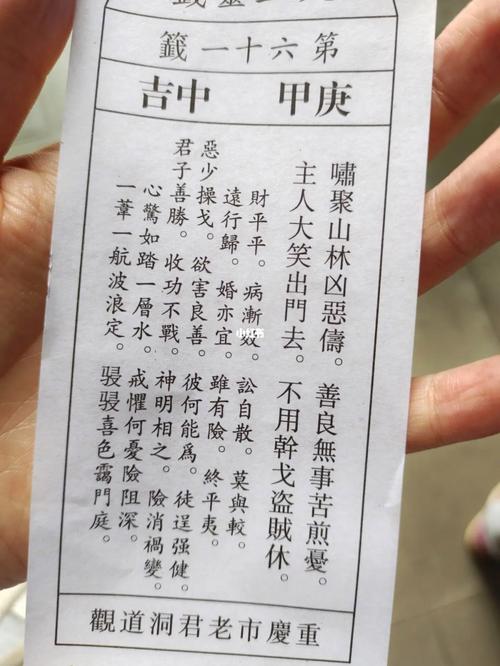 靈籤
第六十一籤
庚甲 中吉
嘯聚山林凶惡儔。善良無事苦煎憂。
主人大笑出門去。不用幹戈盜賊休。
財平平。病漸效。訟自散。莫與較。
遠行歸。婚亦宜。雖有險。終平夷。
惡少操戈。欲害良善。彼何能爲。徒逞强健。
君子善勝。收功不戰。神明相之。險消禍變。
心驚如踏一層水。戒懼何憂險阻深。
一葦一航波浪定。駸駸喜色靄門庭。
重慶市老君洞道觀
小红书